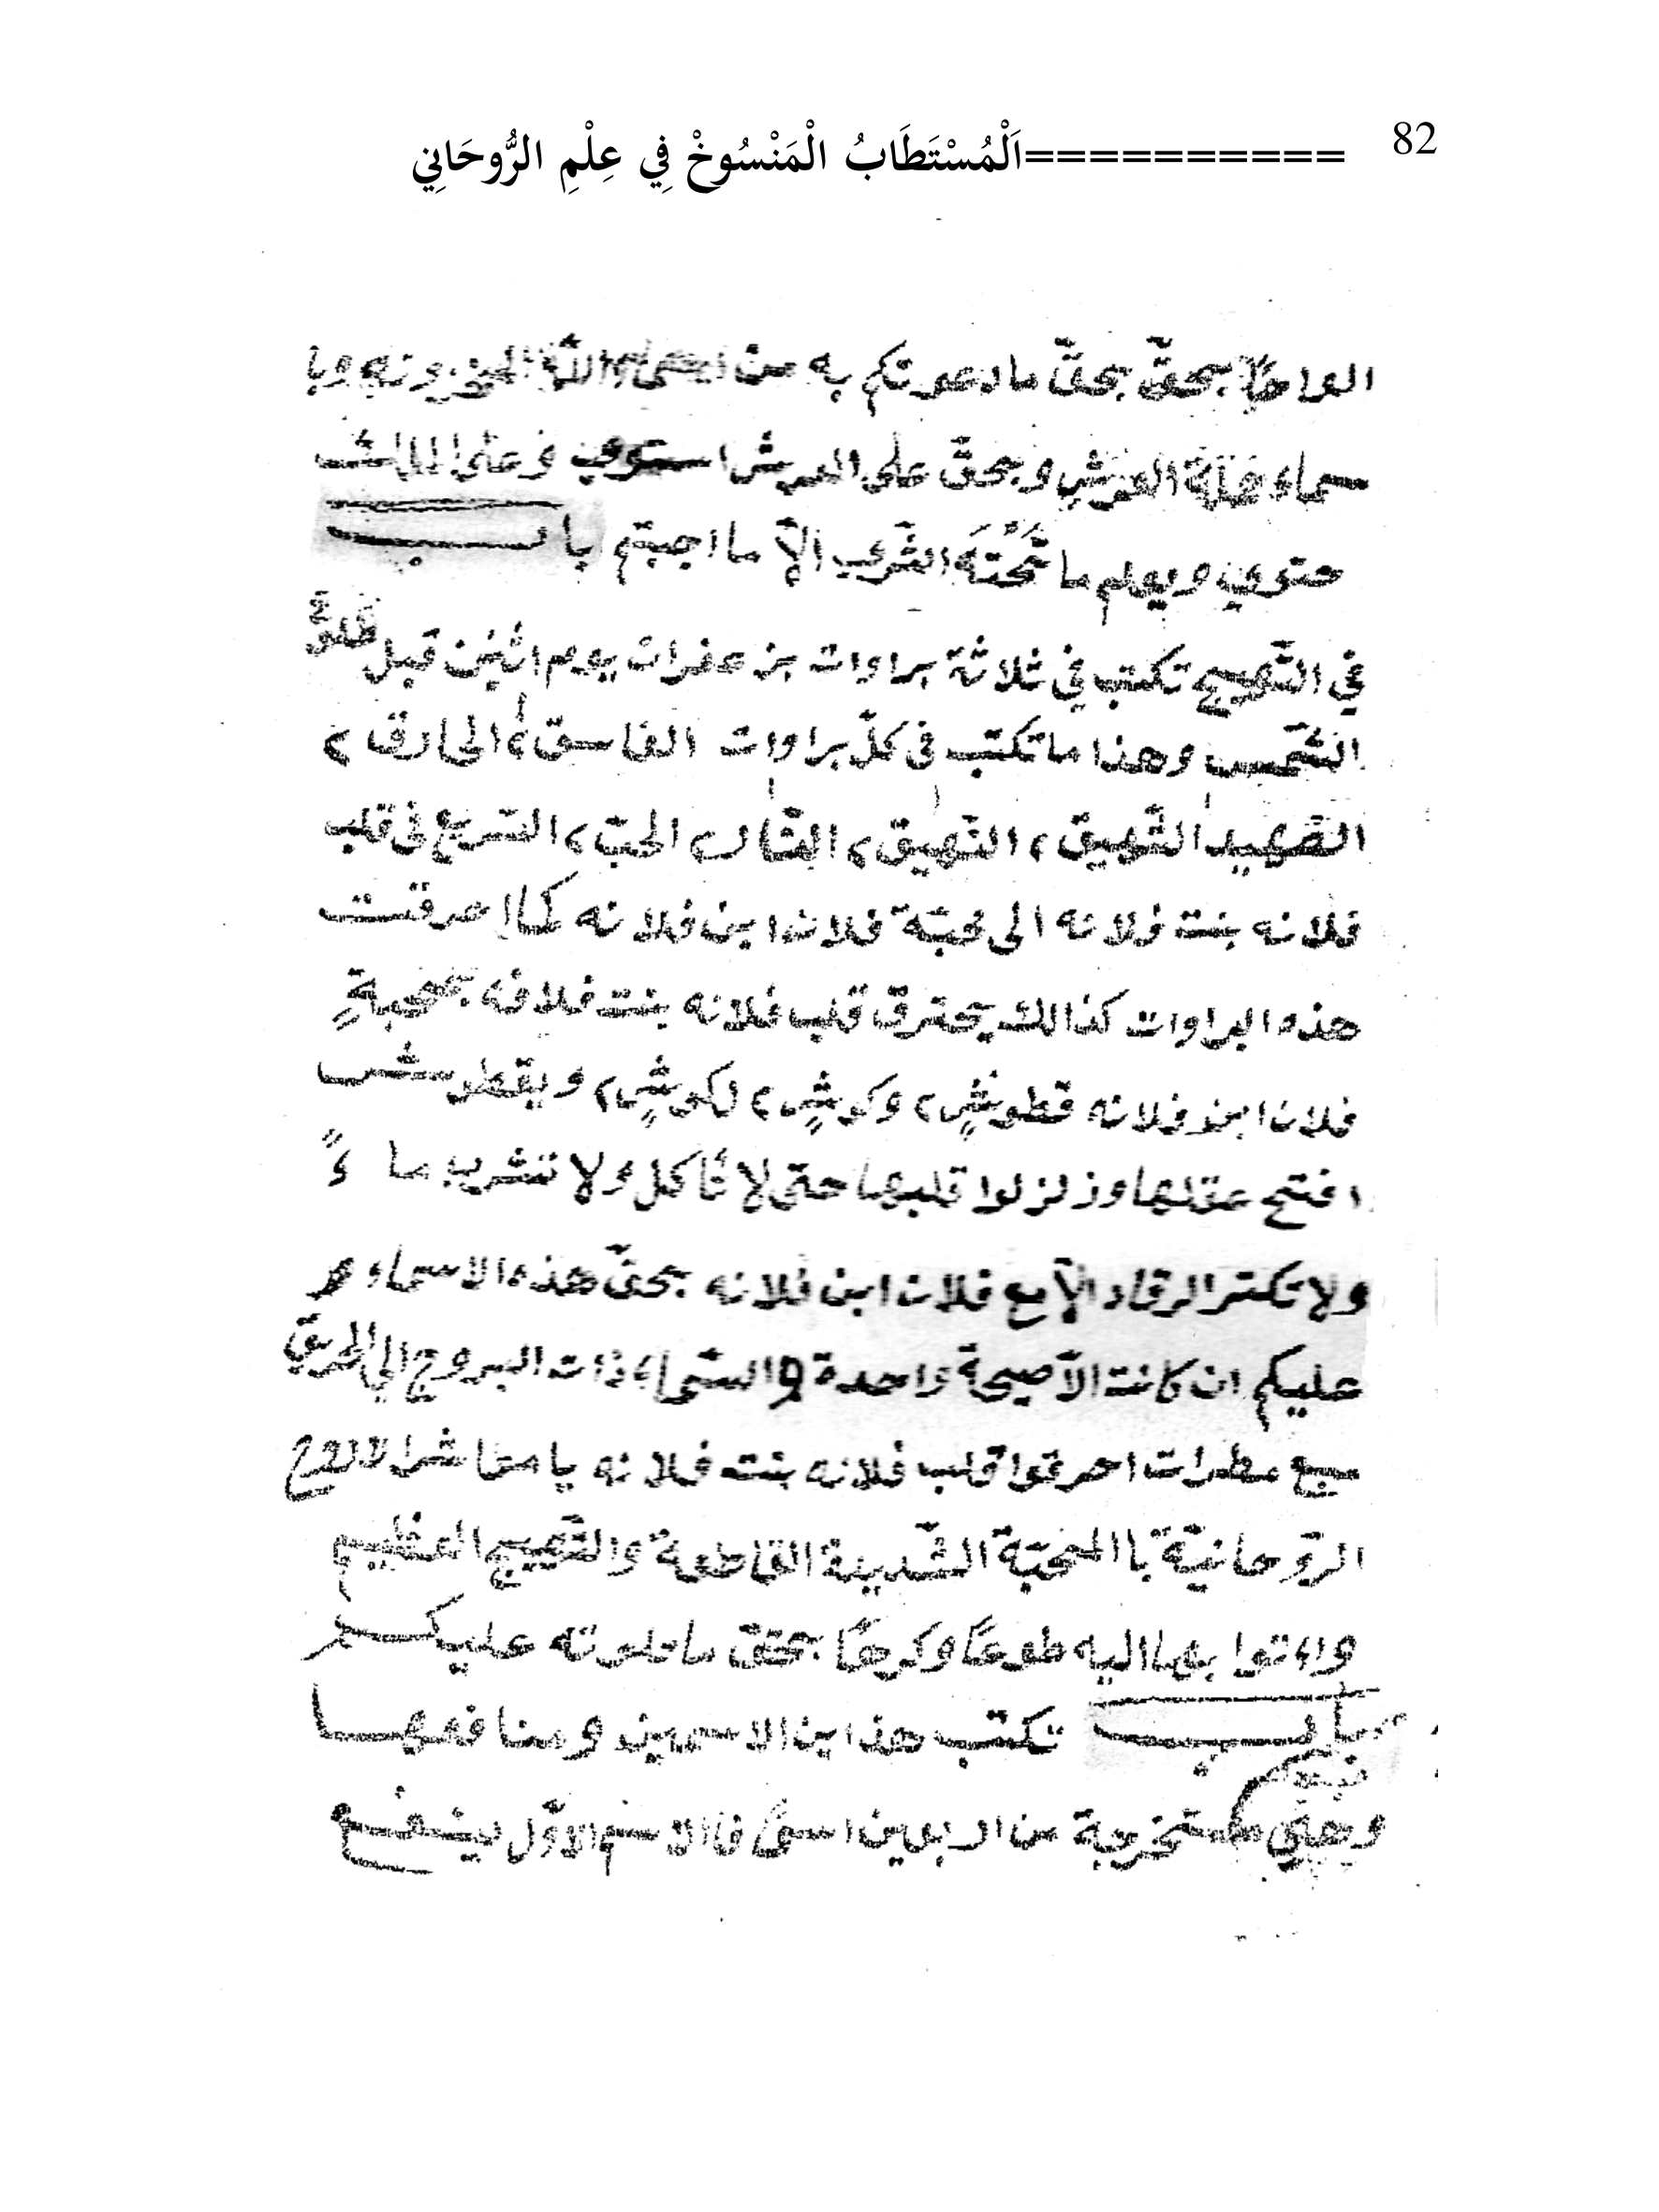 82
==========اَلْمُسْتَطَابُ الْمَنْسُوخْ فِي عِلْمِ الرُّوحَانِي
بحقّ بحقّ ما دعوتكم به من
سماء العرش وبحقّ على العرش استوي وعلى الملك
حتوي ويعلم ما تَحْتَهَ الثّري الاّ ما اجبتم باب
في التّهييج تكتب في ثلاثة براوات بزعفران يوم اثنين قبل طلوع
الشّمس وهذا ما تكتب في كلّ براوات الفاسق ٢ الحارق ٢
الصّهيد الشّهيق ٢ النّهيق ٢ الحبّ ٢ السّريع في قلب
فلانه بنت فلانه الى محبّة فلان ابن فلانه كما احرقت
هذه البراوات كذالك يحترق قلب فلانه بنت فلانه بمحبةٍ
فلان ابن فلانه قطوشٍ ٢ وكوشٍ ٢ لكوشٍ ٢ ويقطوش
افتح عقلها وزلزلوا قلبها حتى لا تأكل ولا تشرب ما ءً
ولا تكتر الرقاد الاّ مع فلان ابن فلانه بحقّ هذه الاسماء
عليكم ان كانت الاّ صيحة واحدة والسّماء ذات البروج الي الحريق
سبع مطرات احرقوا قلب فلانه بنت فلانه يا معاشر الاروح
الرّوحانيّة با المحبّة الشّديدة القاطعة والتّهييج العظيم
واءتوا بها اليه طوعًا وكرهًا بحقّ ما تلوته عليكم
باب تكتب هذاين الاسمين ومنافعهما
مستخرجة من اربعين اسمًا فا الاسم الاوّل ينفع